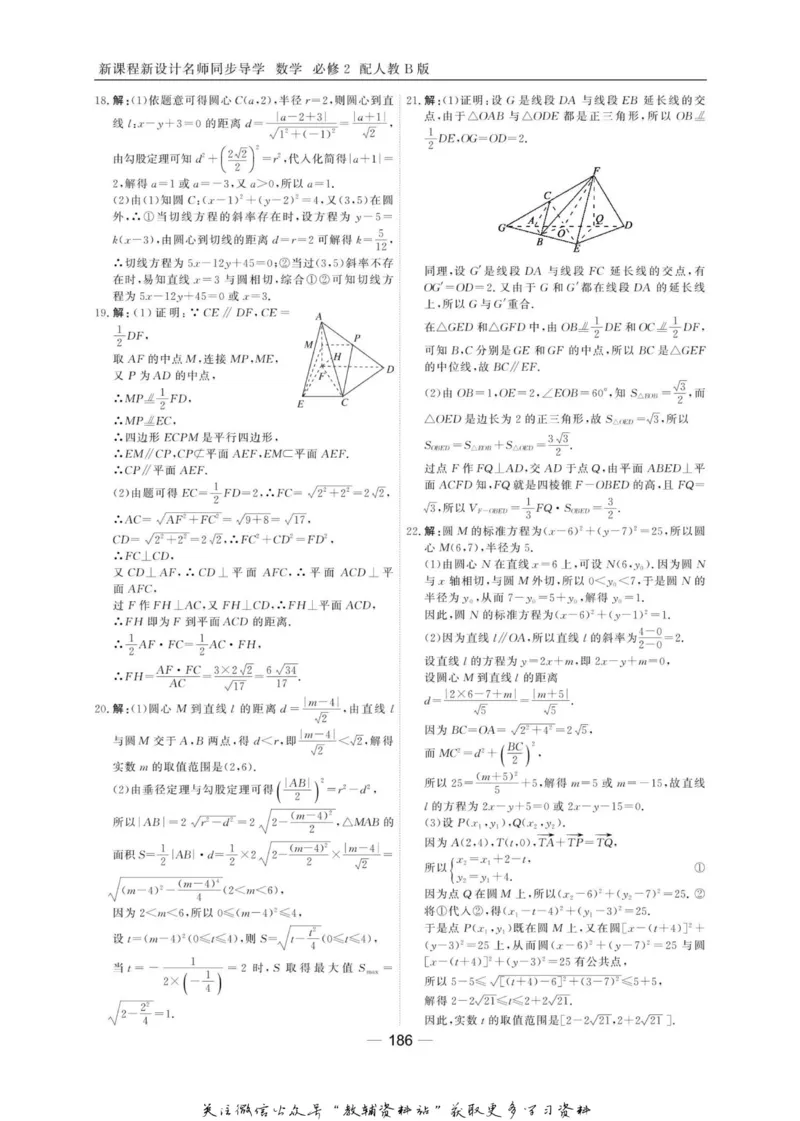 新课程新设计名师同步导学 数学 必修 2 配人教 B 版
18.解:(1)依题意可得圆心 C(a,2),半径 r=2,则圆心到直
线 l:x-y+3=0 的距离 d=|a-2+3|/√(1²+(-1)²)=|a+1|/√2,
由勾股定理可知 d²+(2√2/2)²=r²,代入化简得|a+1|=
2,解得 a=1 或 a=-3,又 a>0,所以 a=1.
(2)由(1)知圆 C:(x-1)²+(y-2)²=4,又(3,5)在圆
外,∴①当切线方程的斜率存在时,设方程为 y-5=
k(x-3),由圆心到切线的距离 d=r=2 可解得 k=5/12,
∴切线方程为 5x-12y+45=0;②当过(3,5)斜率不存
在时,易知直线 x=3 与圆相切,综合①②可知切线方
程为 5x-12y+45=0 或 x=3.
19.解:(1)证明:∵CE∥DF,CE=
1/2 DF,
取 AF 的中点 M,连接 MP,ME,
又 P 为 AD 的中点,
∴MP⫽1/2 FD,
∴MP⫽EC,
∴四边形 ECPM 是平行四边形,
∴EM∥CP,CP⊄平面 AEF,EM⊂平面 AEF.
∴CP∥平面 AEF.
A
M
P
H
D
F
E
C
(2)由题可得 EC=1/2 FD=2,∴FC=√(2²+2²)=2√2,
∴AC=√(AF²+FC²)=√(9+8)=√17,
CD=√(2²+2²)=2√2,∴FC²+CD²=FD²,
∴FC⊥CD,
又 CD⊥AF,∴CD⊥平面 AFC,∴平面 ACD⊥平
面 AFC,
过 F 作 FH⊥AC,又 FH⊥CD,∴FH⊥平面 ACD,
∴FH 即为 F 到平面 ACD 的距离.
∴1/2 AF·FC=1/2 AC·FH,
∴FH=AF·FC/AC=3×2√2/√17=6√34/17.
20.解:(1)圆心 M 到直线 l 的距离 d=|m-4|/√2,由直线 l
与圆 M 交于 A,B 两点,得 d<r,即|m-4|/√2<√2,解得
实数 m 的取值范围是(2,6).
(2)由垂径定理与勾股定理可得(|AB|/2)²=r²-d²,
所以|AB|=2√(r²-d²)=2√(2-(m-4)²/2),△MAB 的
面积 S=1/2|AB|·d=1/2×2√(2-(m-4)²/2)×|m-4|/√2=
√((m-4)²-(m-4)⁴/4)(2<m<6),
因为 2<m<6,所以 0≤(m-4)²≤4,
设 t=(m-4)²(0≤t≤4),则 S=√(t-t²/4)(0≤t≤4),
当 t=-1/(2×(-1/4))=2 时,S 取得最大值 Smax=
√(2-2²/4)=1.
21.解:(1)证明:设 G 是线段 DA 与线段 EB 延长线的交
点,由于△OAB 与△ODE 都是正三角形,所以 OB⫽
1/2 DE,OG=OD=2.
F
C
G
A
O
Q
D
B
E
同理,设 G′是线段 DA 与线段 FC 延长线的交点,有
OG′=OD=2.又由于 G 和 G′都在线段 DA 的延长线
上,所以 G 与 G′重合.
在△GED 和△GFD 中,由 OB⫽1/2 DE 和 OC⫽1/2 DF,
可知 B,C 分别是 GE 和 GF 的中点,所以 BC 是△GEF
的中位线,故 BC∥EF.
(2)由 OB=1,OE=2,∠EOB=60°,知 S△BOB=√3/2,而
△OED 是边长为 2 的正三角形,故 S△OED=√3,所以
SOBED=S△EOB+S△OED=3√3/2.
过点 F 作 FQ⊥AD,交 AD 于点 Q,由平面 ABED⊥平
面 ACFD 知,FQ 就是四棱锥 F-OBED 的高,且 FQ=
√3,所以 VF-OBED=1/3 FQ·SOBED=3/2.
22.解:圆 M 的标准方程为(x-6)²+(y-7)²=25,所以圆
心 M(6,7),半径为 5.
(1)由圆心 N 在直线 x=6 上,可设 N(6,y₀).因为圆 N
与 x 轴相切,与圆 M 外切,所以 0<y₀<7,于是圆 N 的
半径为 y₀,从而 7-y₀=5+y₀,解得 y₀=1.
因此,圆 N 的标准方程为(x-6)²+(y-1)²=1.
(2)因为直线 l∥OA,所以直线 l 的斜率为(4-0)/(2-0)=2.
设直线 l 的方程为 y=2x+m,即 2x-y+m=0,
设圆心 M 到直线 l 的距离
d=|2×6-7+m|/√5=|m+5|/√5.
因为 BC=OA=√(2²+4²)=2√5,
而 MC²=d²+(BC/2)²,
所以 25=(m+5)²/5+5,解得 m=5 或 m=-15,故直线
l 的方程为 2x-y+5=0 或 2x-y-15=0.
(3)设 P(x₁,y₁),Q(x₂,y₂).
因为 A(2,4),T(t,0),TA→+TP→=TQ→,
所以{x₂=x₁+2-t, y₂=y₁+4. ①
因为点 Q 在圆 M 上,所以(x₂-6)²+(y₂-7)²=25. ②
将①代入②,得(x₁-t-4)²+(y₁-3)²=25.
于是点 P(x₁,y₁)既在圆 M 上,又在圆[x-(t+4)]²+
(y-3)²=25 上,从而圆(x-6)²+(y-7)²=25 与圆
[x-(t+4)]²+(y-3)²=25 有公共点,
所以 5-5≤√([(t+4)-6]²+(3-7)²)≤5+5,
解得 2-2√21≤t≤2+2√21.
因此,实数 t 的取值范围是[2-2√21,2+2√21].
— 186 —
关注微信公众号“教辅资料站”获取更多学习资料